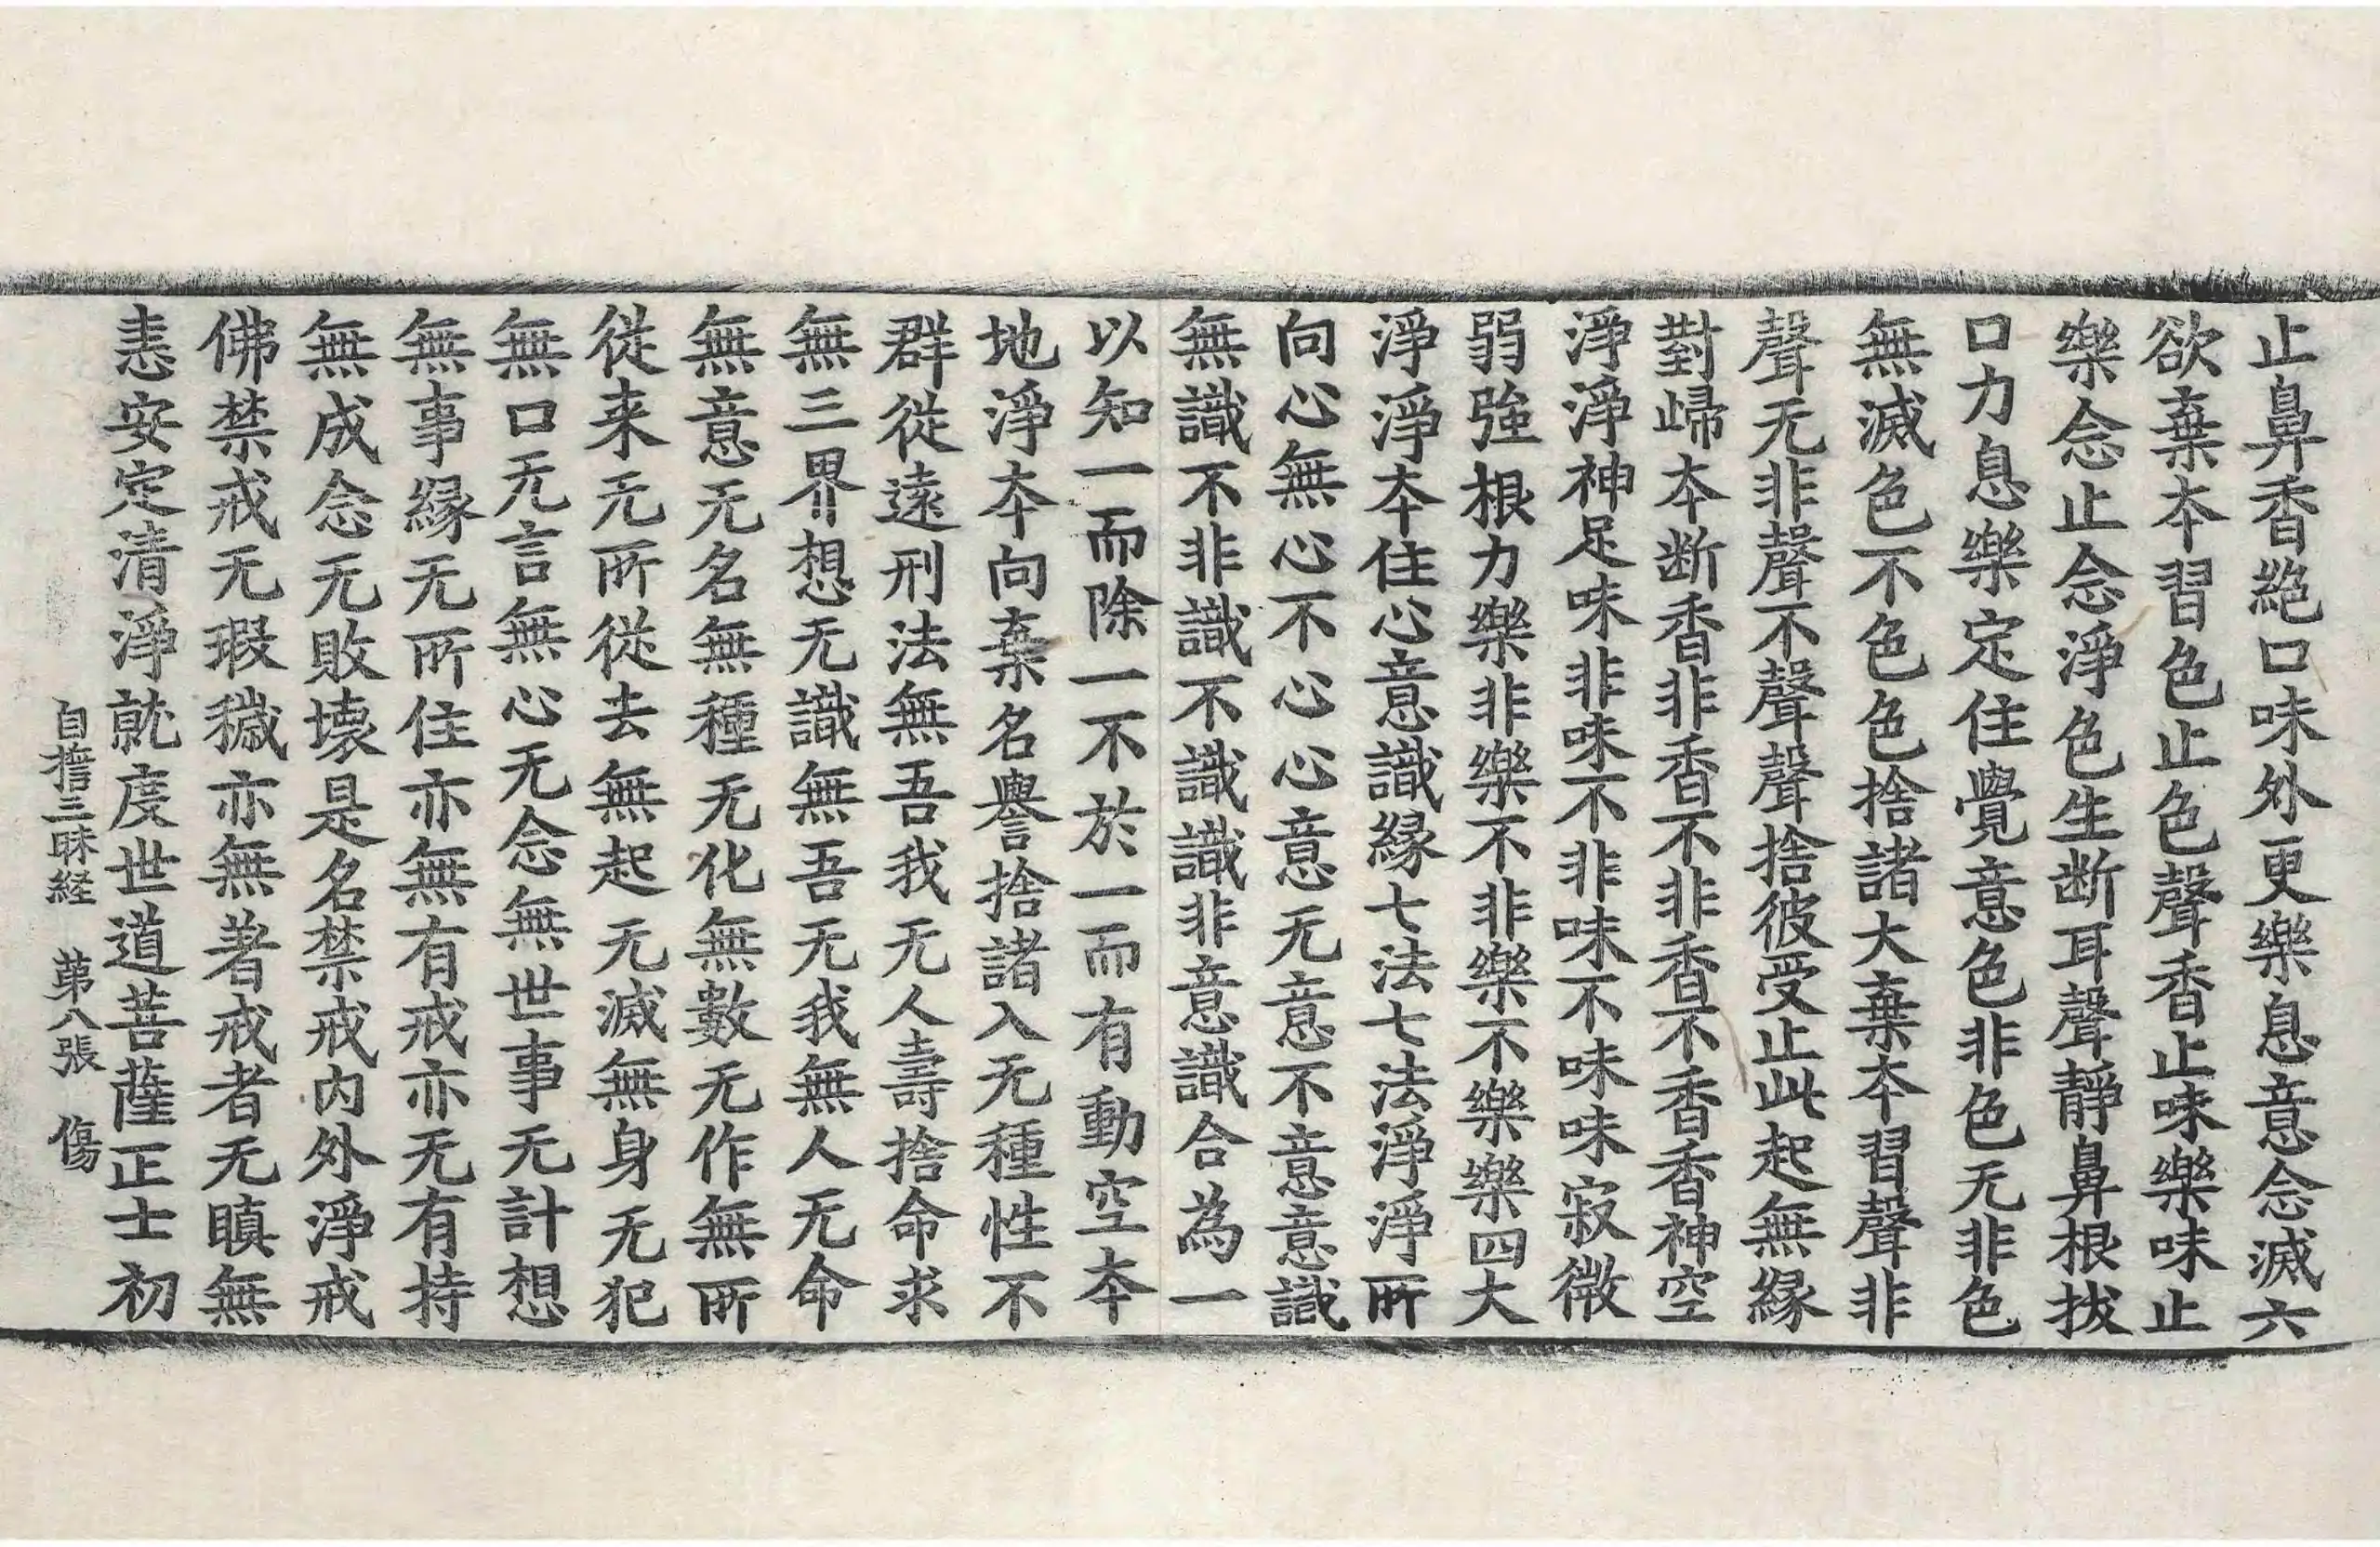 止鼻香絶口味外更樂息意念滅六
欲棄夲習色止色聲香止味樂味止
樂念止念淨色生断耳聲靜鼻根拔
口力息樂定住覺意色非色无非色
無滅色不色色捨諸大棄夲習聲非
聲无非聲不聲聲捨彼受止此起無縁
對歸夲断香非香不非香不香香神空
淨淨神足味非味不非味不味味寂微
弱強根力樂非樂不非樂不樂樂四大
淨淨夲住心意識縁七法七法淨淨所
向心無心不心心意无意不意意識
無識不非識不識識非意識合為一
以知一而除一不於一而有動空夲
地淨夲向棄名譽捨諸入无種性不
群従遠刑法無吾我无人壽捨命求
無三界想无識無吾无我無人无命
無意无名無種无化無數无作無所
従来无所従去無起无滅無身无犯
無口无言無心无念無世事无計想
無事縁无所住亦無有戒亦无有持
無成念无敗壊是名禁戒内外淨戒
佛禁戒无瑕穢亦無著戒者无瞋無
恚安定清淨就度世道菩薩正士初
自擔三昧経 苐八張 傷